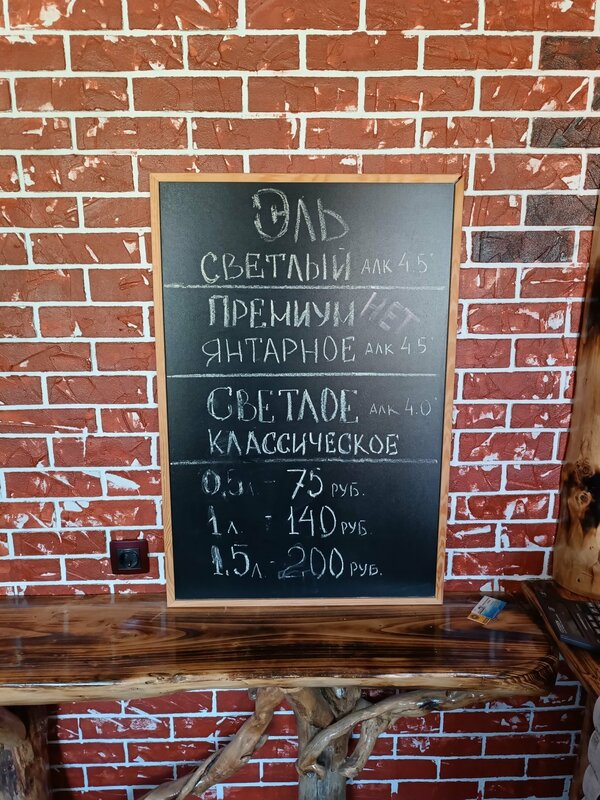 Эль
СВЕТЛЫЙ АЛК 4.5°
ПРЕМИУМ НЕТ
ЯНТАРНОЕ АЛК 4.5°
СВЕТЛОЕ АЛК 4.0°
КЛАССИЧЕСКОЕ
0,5л - 75 РУБ.
1 л. - 140 РУБ.
1,5 л. - 200 РУБ.